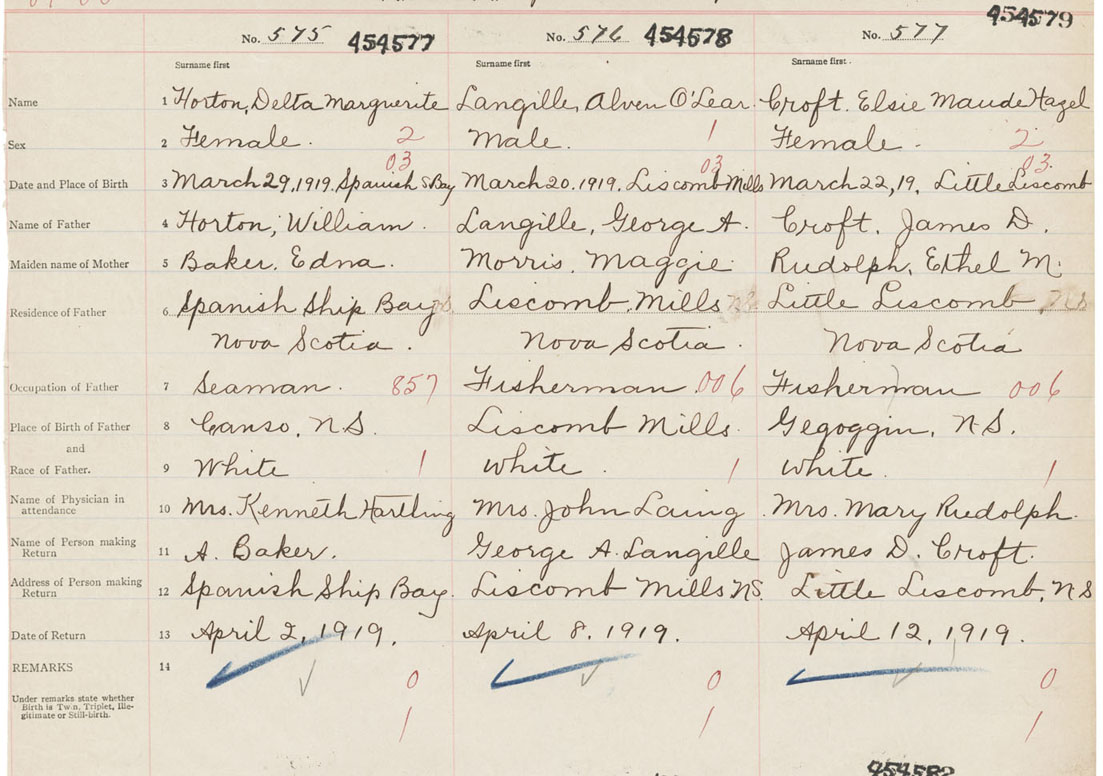 No. 575 454577 No. 576 454578 No. 577 454579
Surname first Surname first Surname first.
Name 1 Horton, Delta Marguerite Langille, Alven O'Lear. Croft. Elsie Maude Hazel
Sex 2 Female. 2 Male. 1 Female. 2
03 03 03
Date and Place of Birth 3 March 29, 1919. Spanish S Bay March 20. 1919. Liscomb Mills March 22, 19, Little Liscomb
Name of Father 4 Horton, William. Langille, George A. Croft. James D.
Maiden name of Mother 5 Baker. Edna. Morris. Maggie Rudolph, Ethel M.
Residence of Father 6 Spanish Ship Bay Liscomb, Mills NS Little Liscomb NS
Nova Scotia. Nova Scotia. Nova Scotia
Occupation of Father 7 Seaman. 857 Fisherman 006 Fisherman 006
Place of Birth of Father 8 Canso, N.S. Liscomb Mills. Gegoggin, N.S.
and
Race of Father. 9 White 1 White. 1 White. 1
Name of Physician in
attendance 10 Mrs. Kenneth Hartling Mrs. John Laing Mrs. Mary Rudolph.
Name of Person making
Return 11 A. Baker. George A. Langille James D. Croft.
Address of Person making
Return 12 Spanish Ship Bay. Liscomb Mills N.S. Little Liscomb, N S
Date of Return 13 April 2, 1919. April 8, 1919. April 12, 1919.
REMARKS 14 0 0 0
Under remarks state whether
Birth is Twin, Triplet, Ille-
gitimate or Still-birth. 1 1 1
454582